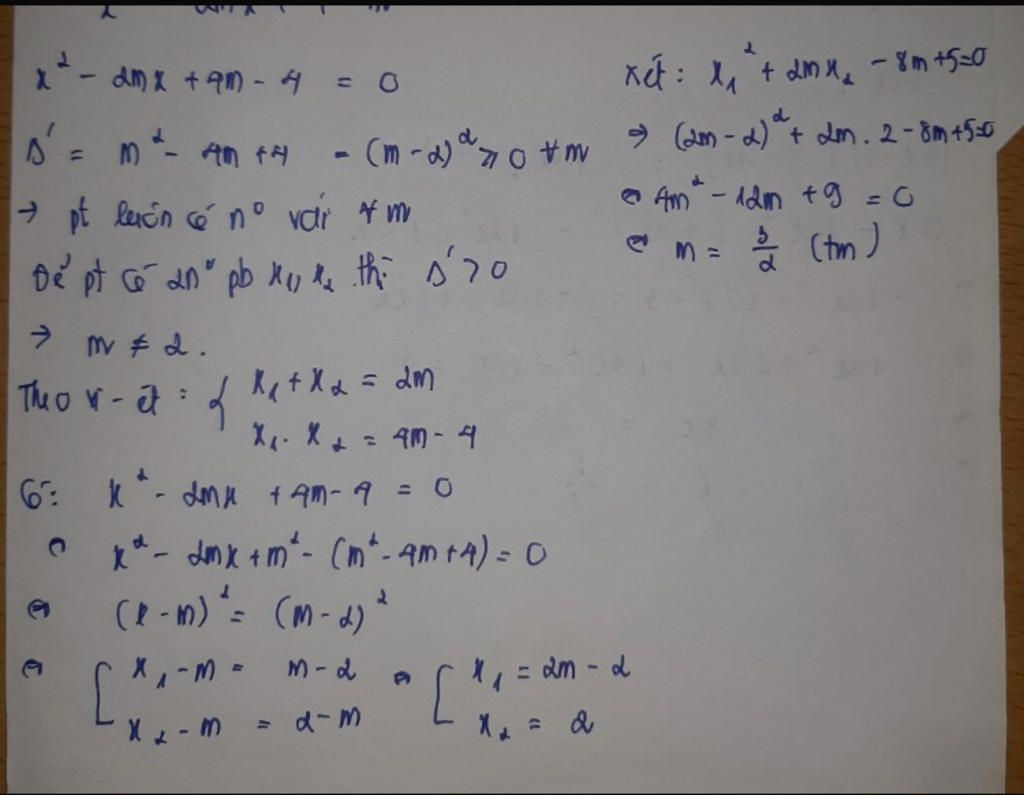 x² - 2mx + 4m - 4 = 0
Δ' = m² - 4m + 4 = (m - 2)² ⩾ 0 ∀m
→ pt luôn có n⁰ với ∀m
Để pt có 2n⁰ pb x₁, x₂ thì Δ' > 0
→ m ≠ 2.
Theo Vi-ét: { x₁ + x₂ = 2m
x₁. x₂ = 4m - 4
Có: x² - 2mx + 4m - 4 = 0
⇔ x² - 2mx + m² - (m² - 4m + 4) = 0
⇔ (x - m)² = (m - 2)²
⇔ [ x₁ - m = m - 2 ⇔ [ x₁ = 2m - 2
x₂ - m = 2 - m x₂ = 2
xét: x₁² + 2mx₂ - 8m + 5 = 0
→ (2m - 2)² + 2m . 2 - 8m + 5 = 0
⇔ 4m² - 12m + 9 = 0
⇔ m = 3/2 (tm)